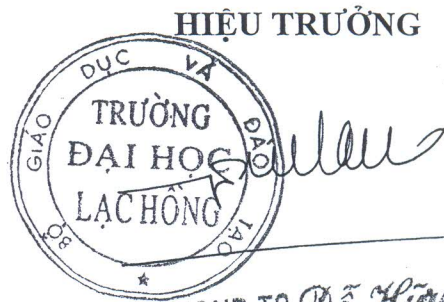 HIỆU TRƯỞNG
BỘ GIÁO DỤC VÀ ĐÀO TẠO
TRƯỜNG
ĐẠI HỌC
LẠC HỒNG
Đỗ Hữu